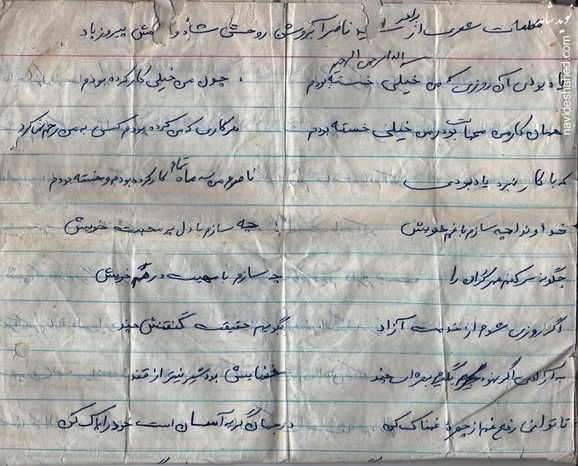 کلمات شعری از برادر ناصر آبروشن روحش شاد و راهش پیروز باد
بسم الله الرحمن الرحیم
یاد بودی آن روزی که من خیلی خسته بودم چون من خیلی کار کرده بودم
همان کار من مهمات بود من خیلی خسته بودم هر کاری که من کرده بودم کسی به من رحم نکرد
که با کار نبرد یاد بودی ناصرم من سه ماه تمام کار کرده بودم و خسته بودم
خداوندا چه سازم با غم خویش چه سازم با دل پر محبت خویش
چگونه سر کنم عمر گران را چه سازم با مصیبت در غم خویش
اگر روزی شوم از خدمت آزاد بگویم حقیقت گفتنش چند
به آزادی اگر بهره‌ای چند بود شیرین‌تر از قند
تا توانی رفع غم از چهره غمناک کن در جهان گریه آسان است خود را پاک کن
نوید شاهد
navideshahed.com